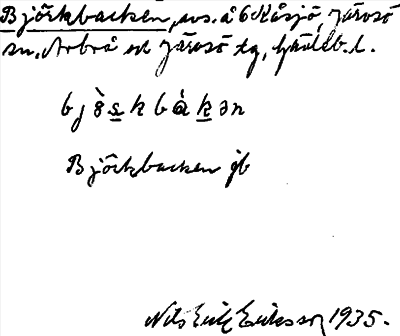 Björkbacken, avs. å 6 Kåsjö, Järvsö
sn, Arbrå o. Järvsö tg, Gävleb. l.
bjöskbakən
Björkbacken jb
Nils Erik Eriksson 1935.